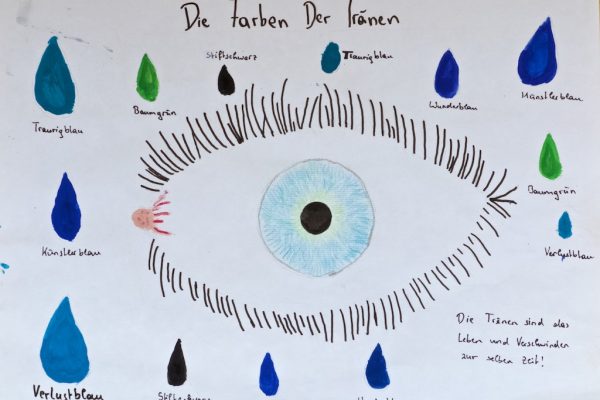 Die Farben Der Tränen
Stiftschwarz
Traurigblau
Wunderblau
Künstlerblau
Baumgrün
Traurigblau
Baumgrün
Verlustblau
Künstlerblau
Die Tränen sind das
Leben und Verschwinden
zur selben Zeit!
Verlustblau